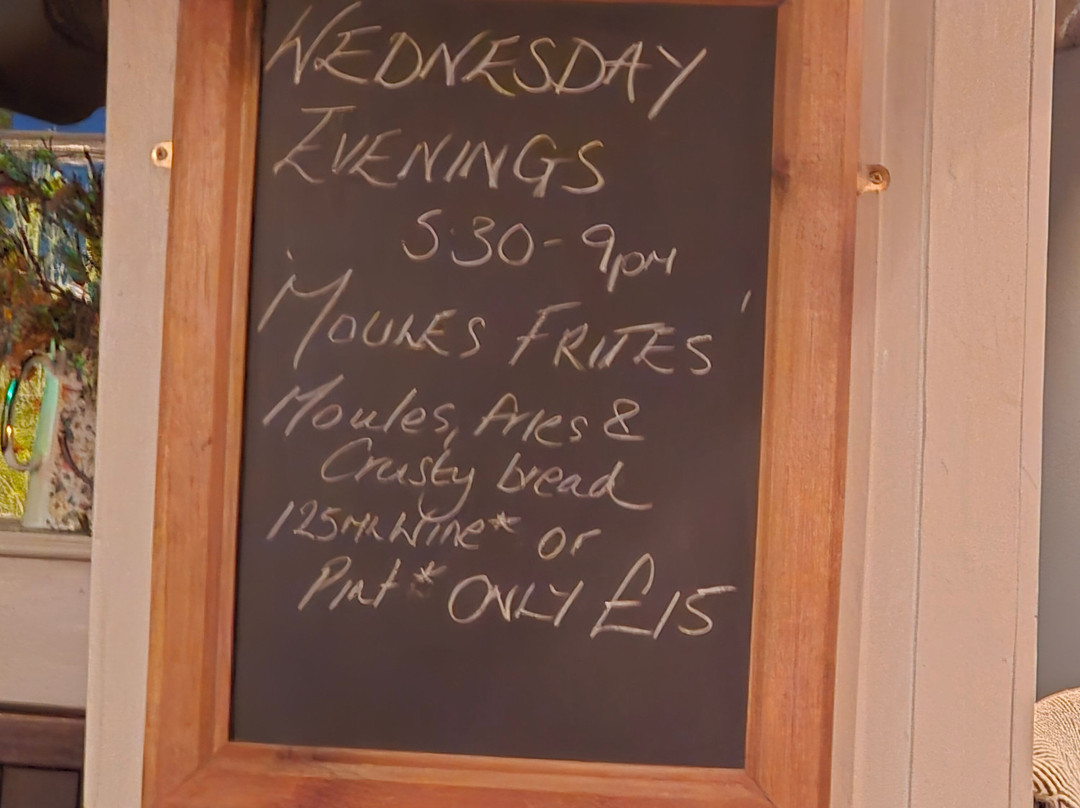 WEDNESDAY
EVENINGS
5.30-9pm
'MOULES FRITES'
Moules, fries &
Crusty bread
125ML WINE* or
Pint* ONLY £15